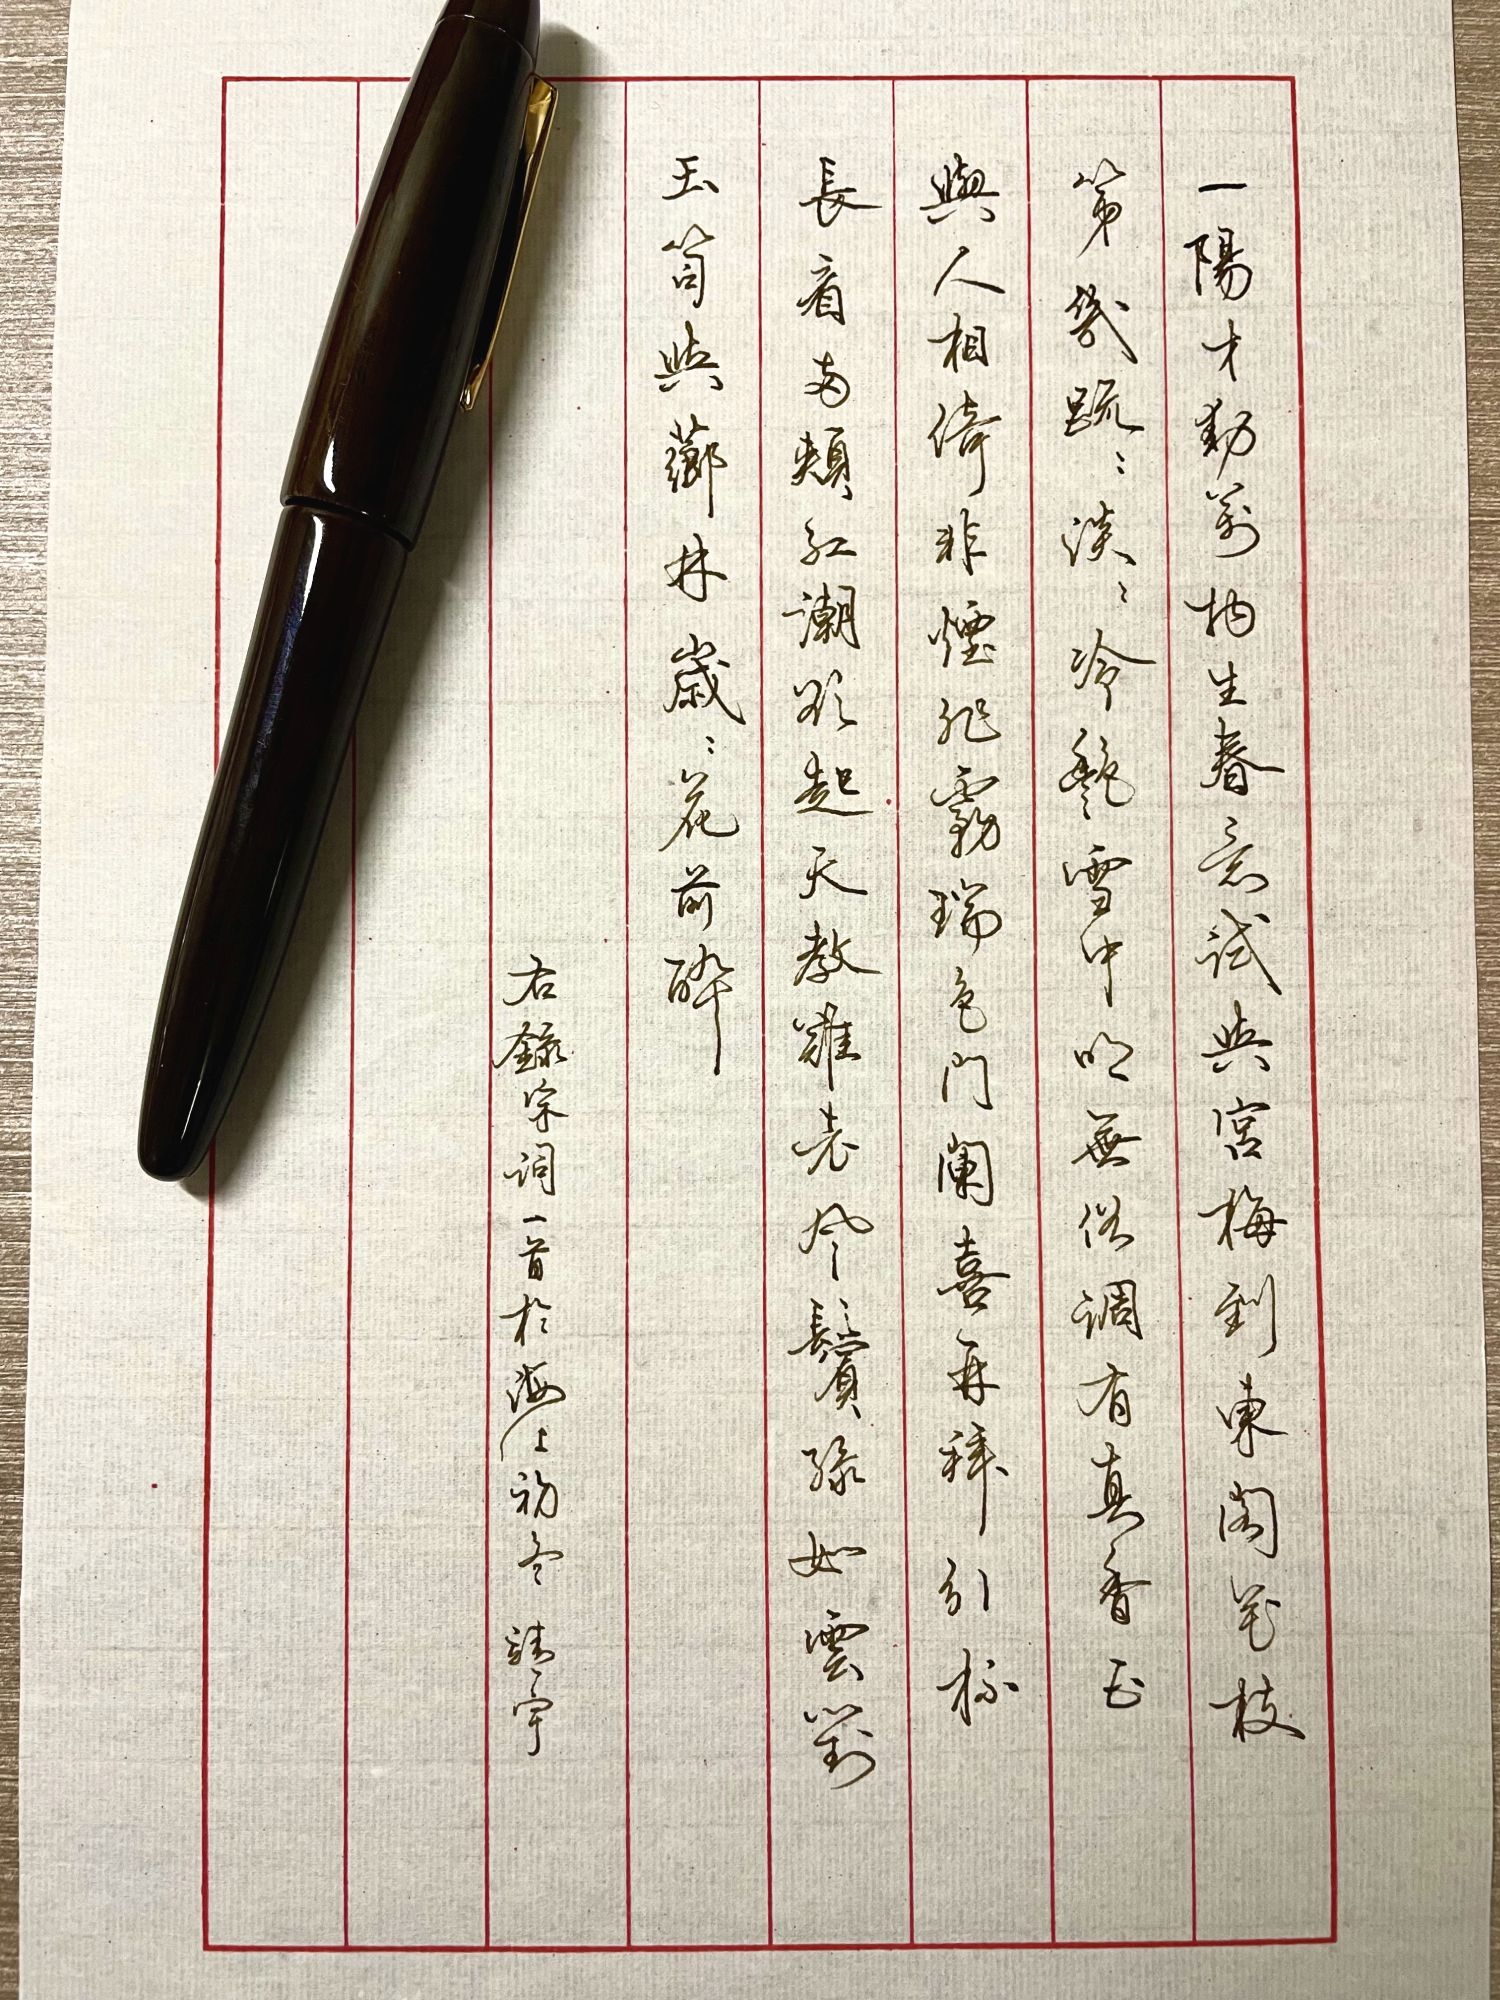 一陽才動萬物生春意試與宮梅到東閣花枝
第幾疏〻淡〻冷艷雪中明無俗調有真香正
與人相倚非煙非霧瑞色門闌喜再拜引杯
長看兩頰紅潮欲起天教難老風鬢綠如雲對
玉筍與薌林歲〻花前醉
右錄宋詞一首於海上初冬 靖宇